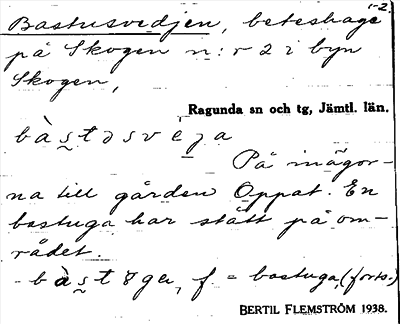 1-2.
Bastusvedjen, beteshage
på Skogen n:r 2 i byn
Skogen,
Ragunda sn och tg, Jämtl. län.
bàs̰təsve̬ja
På inägor-
na till gården Oppat. En
bastuga har stått på om-
rådet.
bàs̰t8ga, f. = bastuga, (forts.)
BERTIL FLEMSTRÖM 1938.